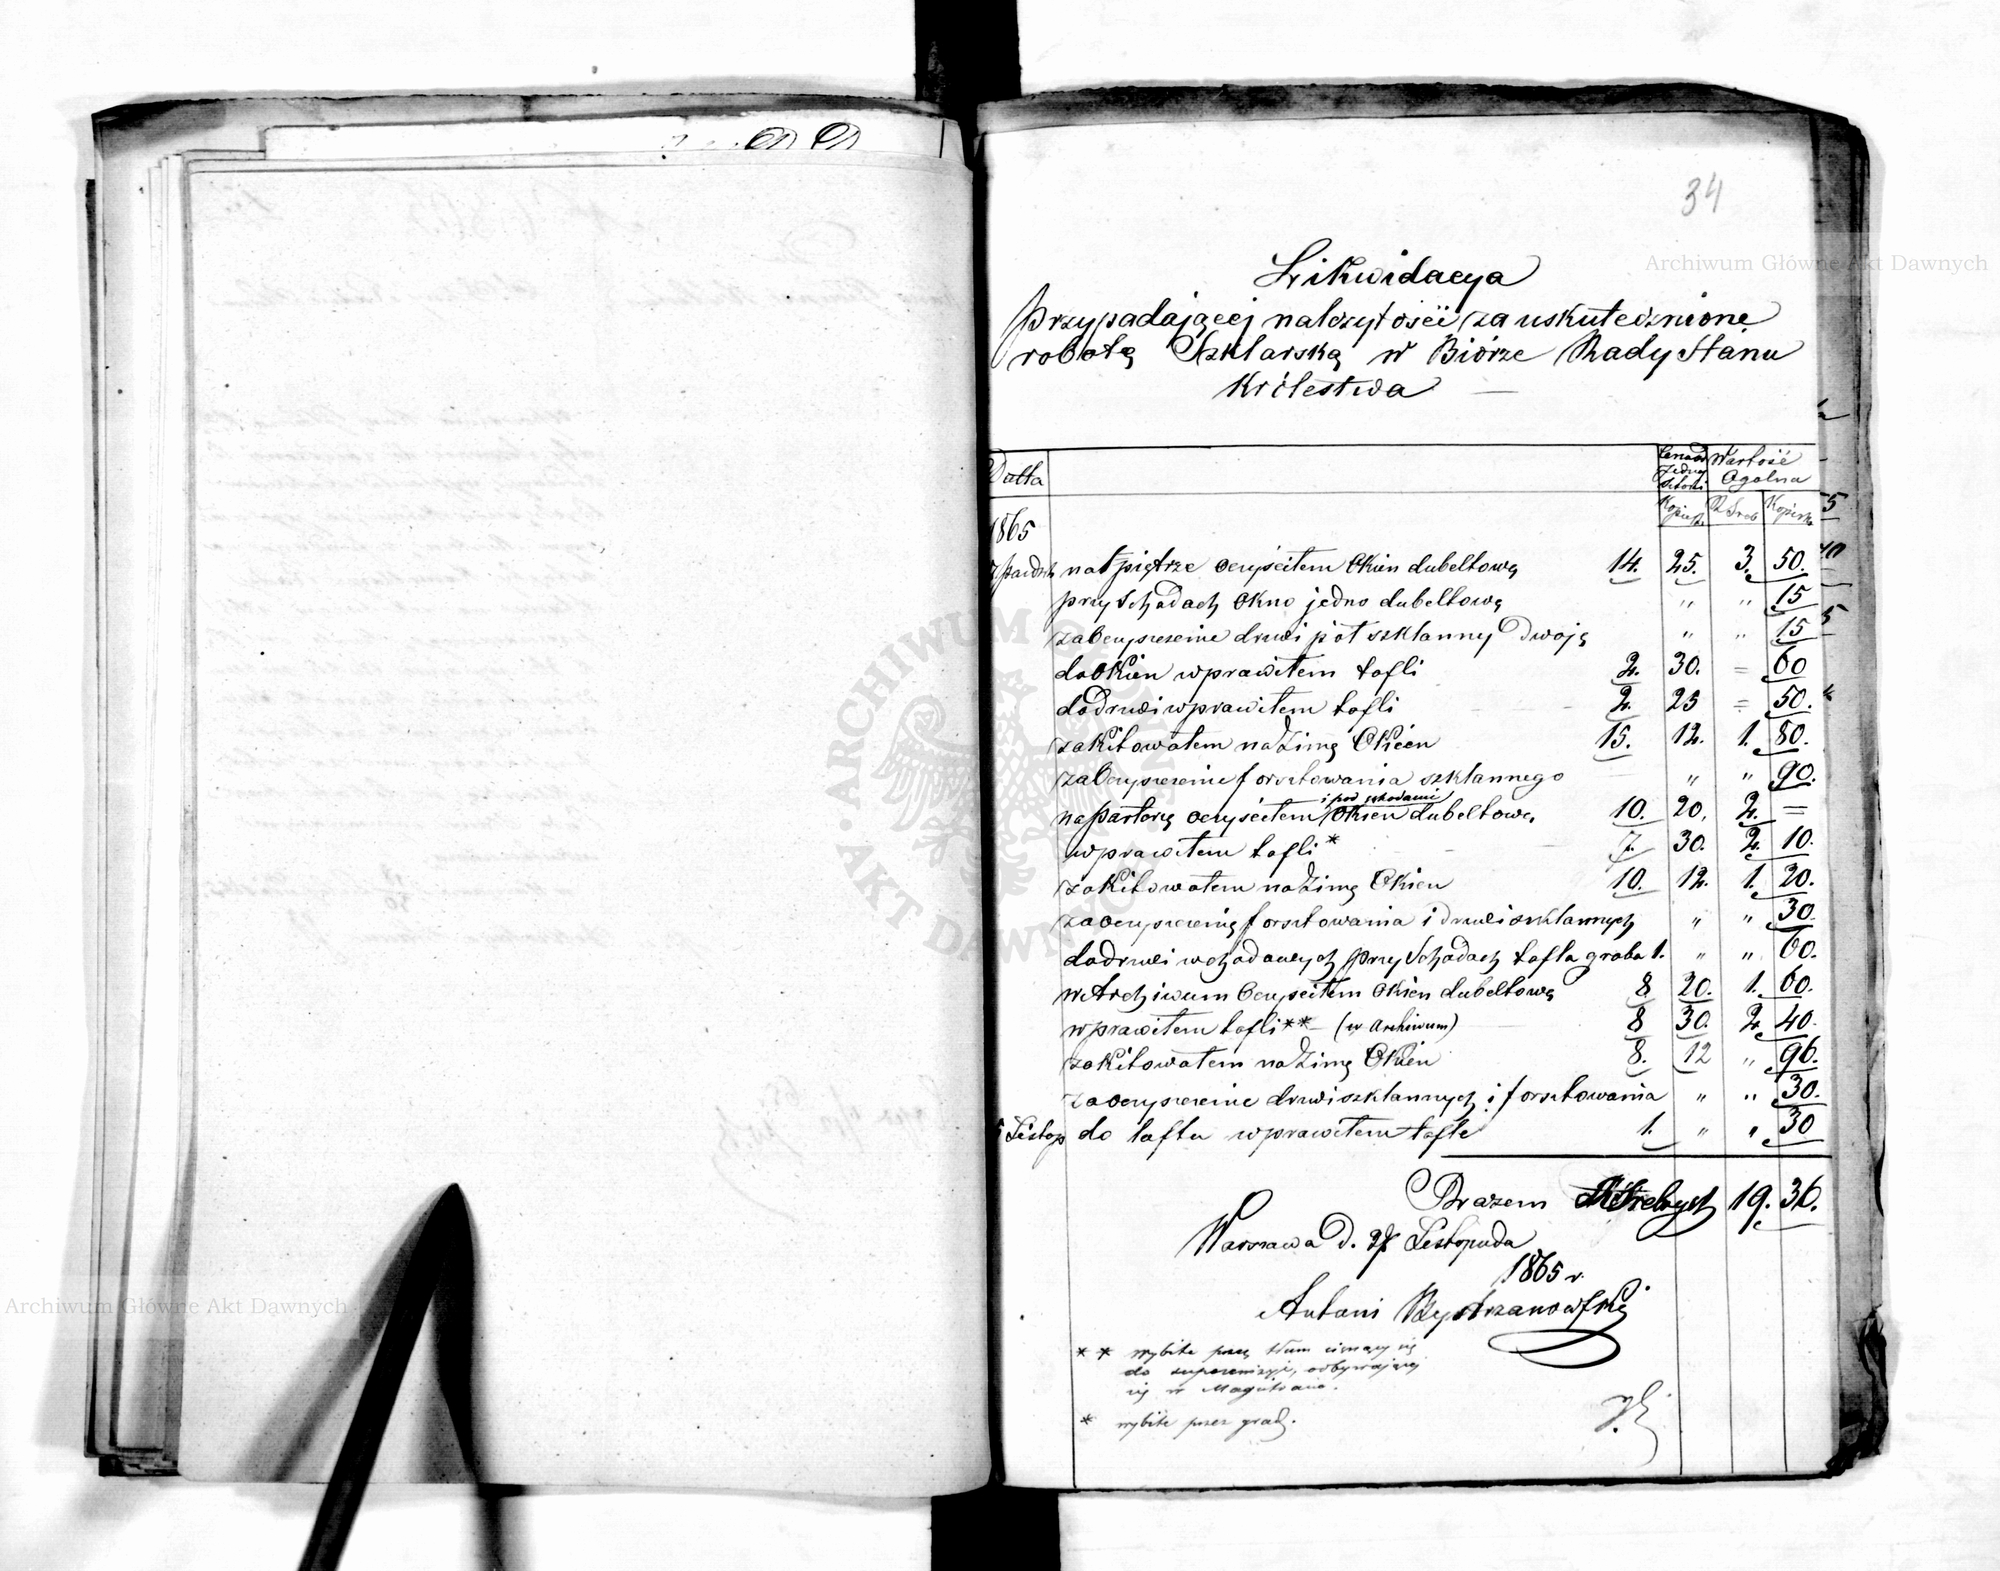 34
Likwidacya
Przypadającej należytości za uskutecznioną
robotę Szklarską w Biórze Rady Stanu
Królestwa —
Datta
Cena od jednej sztuki
Wartość Ogolna
Kopiejki
R. Sreb
Kopiejki
1865
na 1 piętrze oczyścitem Okien dubeltowę 14. 25. 3. 50.
przy Schodach Okno jedno dubeltowę " " 15
za Oczyszczenie drzwi pół szklanny Dwoję " " 15
do Okien wprawiłem tafli 2. 30. = 60
do Drzwi wprawiłem tafli 2. 25 = 50.
zakitowałem na Zimę Okien 15. 12. 1. 80.
za Oczyszczenie forsztowania szklannego " " 90.
na Partorę oczyścitem i pod schodami Okien dubeltowę 10. 20. 2. =
wprawiłem tafli * 7. 30. 2. 10.
zakitowałem na Zimę Okien 10. 12. 1. 20.
za oczyszczenię forsztowania i drzwi szklannych " " 30.
do drzwi wchodowych przy Schodach tafla graba 1. " " 60.
w Archiwum Oczyścitem Okien dubeltowę 8 20. 1. 60.
wprawiłem tafli ** — (w Archiwum) 8 30. 2. 40.
zakitowałem na Zimę Okien 8. 12 " 96.
za oczyszczenie drzwi szklannych i forsztowania " " 30.
Listop do laftu wprawiłem tafle 1. " " 30
Razem 19. 36.
Warszawa D. Listopada
1865 r.
Antoni Bystrzanowski
** wybite przez tłum cisnący się
do superrewizyi, odbywającej
się w Magistracie.
* wybite przez grad.
Archiwum Główne Akt Dawnych
Archiwum Główne Akt Dawnych
ARCHIWUM GŁÓWNE AKT DAWNYCH